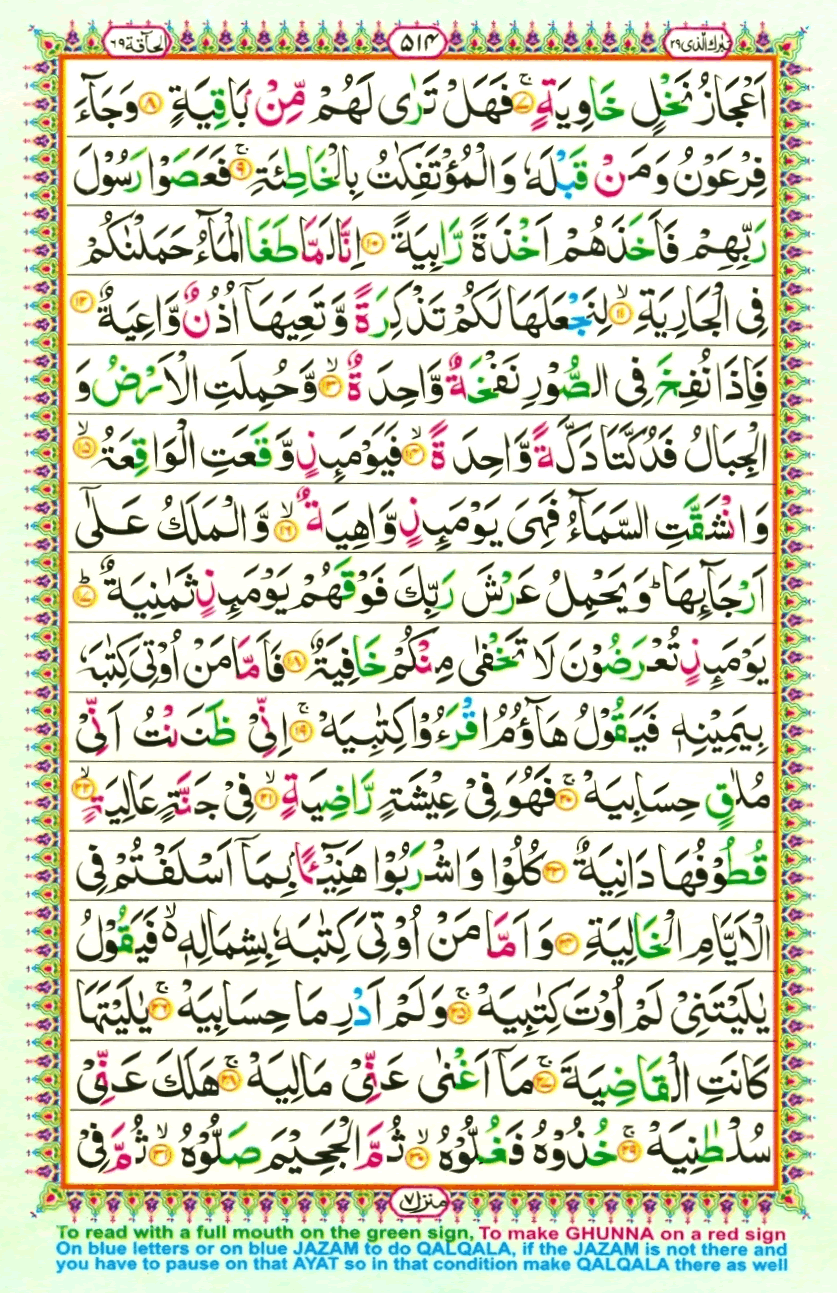 تبٰرك الذی ۲۹
۵۱۴
الحآقة ۶۹
اَعْجَازُ نَخْلٍ خَاوِيَةٍ ۚ﴿۷﴾ فَهَلْ تَرٰى لَهُمْ مِّنْۢ بَاقِيَةٍ ﴿۸﴾ وَجَآءَ
فِرْعَوْنُ وَمَنْ قَبْلَهٗ وَالْمُؤْتَفِكٰتُ بِالْخَاطِئَةِ ۚ﴿۹﴾ فَعَصَوْا رَسُوْلَ
رَبِّهِمْ فَاَخَذَهُمْ اَخْذَةً رَّابِيَةً ﴿۱۰﴾ اِنَّا لَمَّا طَغَا الْمَآءُ حَمَلْنٰكُمْ
فِى الْجَارِيَةِ ۙ﴿۱۱﴾ لِنَجْعَلَهَا لَكُمْ تَذْكِرَةً وَّتَعِيَهَآ اُذُنٌ وَّاعِيَةٌ ﴿۱۲﴾
فَاِذَا نُفِخَ فِى الصُّوْرِ نَفْخَةٌ وَّاحِدَةٌ ۙ﴿۱۳﴾ وَّحُمِلَتِ الْاَرْضُ وَ
الْجِبَالُ فَدُكَّتَا دَكَّةً وَّاحِدَةً ۙ﴿۱۴﴾ فَيَوْمَئِذٍ وَّقَعَتِ الْوَاقِعَةُ ۙ﴿۱۵﴾
وَانْشَقَّتِ السَّمَآءُ فَهِىَ يَوْمَئِذٍ وَّاهِيَةٌ ۙ﴿۱۶﴾ وَّالْمَلَكُ عَلٰٓى
اَرْجَآئِهَا ؕ وَيَحْمِلُ عَرْشَ رَبِّكَ فَوْقَهُمْ يَوْمَئِذٍ ثَمٰنِيَةٌ ؕ﴿۱۷﴾
يَوْمَئِذٍ تُعْرَضُوْنَ لَا تَخْفٰى مِنْكُمْ خَافِيَةٌ ﴿۱۸﴾ فَاَمَّا مَنْ اُوْتِىَ كِتٰبَهٗ
بِيَمِيْنِهٖ فَيَقُوْلُ هَآؤُمُ اقْرَءُوْا كِتٰبِيَهْ ۚ﴿۱۹﴾ اِنِّىْ ظَنَنْتُ اَنِّىْ
مُلٰقٍ حِسَابِيَهْ ۚ﴿۲۰﴾ فَهُوَ فِىْ عِيْشَةٍ رَّاضِيَةٍ ۙ﴿۲۱﴾ فِىْ جَنَّةٍ عَالِيَةٍ ۙ﴿۲۲﴾
قُطُوْفُهَا دَانِيَةٌ ﴿۲۳﴾ كُلُوْا وَاشْرَبُوْا هَنِيْٓـئًۢا بِمَآ اَسْلَفْتُمْ فِى
الْاَيَّامِ الْخَالِيَةِ ﴿۲۴﴾ وَاَمَّا مَنْ اُوْتِىَ كِتٰبَهٗ بِشِمَالِهٖ ۙ فَيَقُوْلُ
يٰلَيْتَنِىْ لَمْ اُوْتَ كِتٰبِيَهْ ۚ﴿۲۵﴾ وَلَمْ اَدْرِ مَا حِسَابِيَهْ ۚ﴿۲۶﴾ يٰلَيْتَهَا
كَانَتِ الْقَاضِيَةَ ۚ﴿۲۷﴾ مَآ اَغْنٰى عَنِّىْ مَالِيَهْ ۚ﴿۲۸﴾ هَلَكَ عَنِّىْ
سُلْطٰنِيَهْ ۚ﴿۲۹﴾ خُذُوْهُ فَغُلُّوْهُ ۙ﴿۳۰﴾ ثُمَّ الْجَحِيْمَ صَلُّوْهُ ۙ﴿۳۱﴾ ثُمَّ فِىْ
منزل ۷
To read with a full mouth on the green sign, To make GHUNNA on a red sign
On blue letters or on blue JAZAM to do QALQALA, if the JAZAM is not there and
you have to pause on that AYAT so in that condition make QALQALA there as well